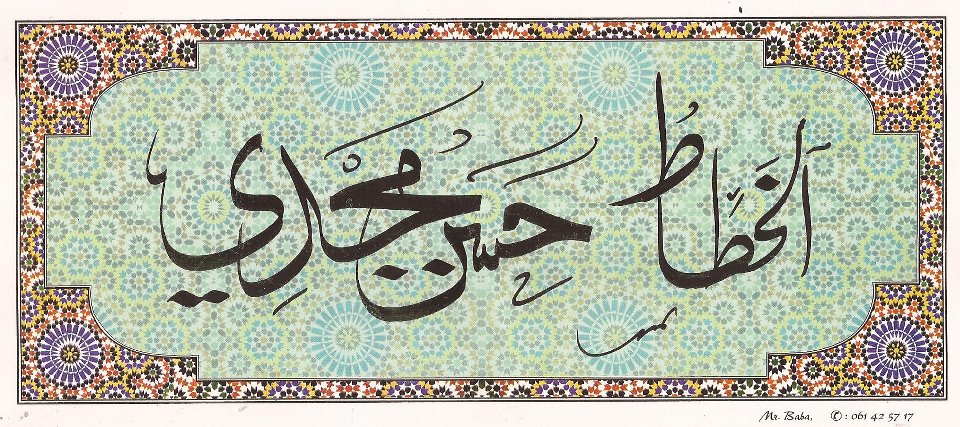 الخطاط حسن مجدي
Mr. Baba, ✆ : 061 42 57 17